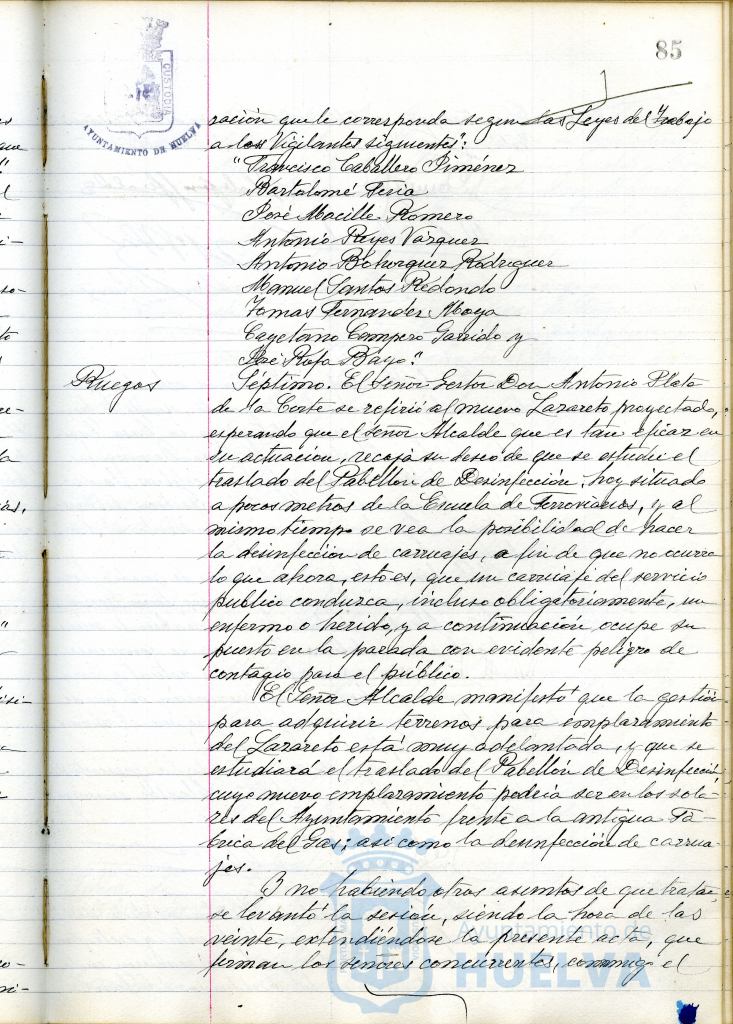 85
CUSTODIA
AYUNTAMIENTO DE HUELVA
ración que le corresponda segun las Leyes del Trabajo
a los Vigilantes siguientes":
"Francisco Caballero Jiménez
Bartolomé Feria
José Macille Romero
Antonio Reyes Vázquez
Antonio Bohorquez Rodriguez
Manuel Santos Redondo
Tomas Fernandez Moya
Cayetano Campero Garrido y
José Rofa Bayo."
Ruegos
Séptimo. El Señor Gestor Don Antonio Plata
de la Corte se refirió al nuevo Lazareto proyectado,
esperando que el señor Alcalde que es tan eficaz en
su actuación, recoja su deseo de que se estudie el
traslado del Pabellón de Desinfección, hoy situado
a pocos metros de la Escuela de Ferroviarios, y al
mismo tiempo se vea la posibilidad de hacer
la desinfección de carruajes, a fin de que no ocurra
lo que ahora, esto es, que un carruaje del servicio
público conduzca, incluso obligatoriamente, un
enfermo o herido, y a continuación ocupe su
puesto en la parada con evidente peligro de
contagio para el público.
El Señor Alcalde manifestó que la gestión
para adquirir terrenos para emplazamiento
del Lazareto está muy adelantada, y que se
estudiará el traslado del Pabellón de Desinfección,
cuyo nuevo emplazamiento podría ser en los sola-
res del Ayuntamiento frente a la antigua Fá-
brica del Gas; así como la desinfección de carrua-
jes.
Y no habiendo otros asuntos de que tratar,
se levantó la sesión, siendo la hora de las
veinte, extendiéndose la presente acta, que
firman los señores concurrentes, conmigo el
Ayuntamiento de
HUELVA